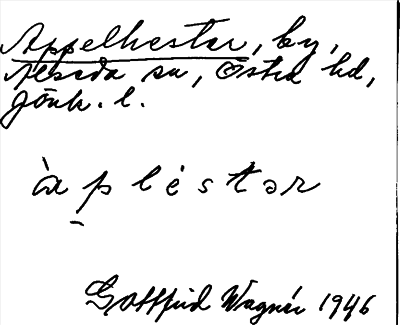 Appelhestar, by,
Alseda sn, Östra hd,
Jönk. l.
àplèstər
Gottfrid Wagnér 1946